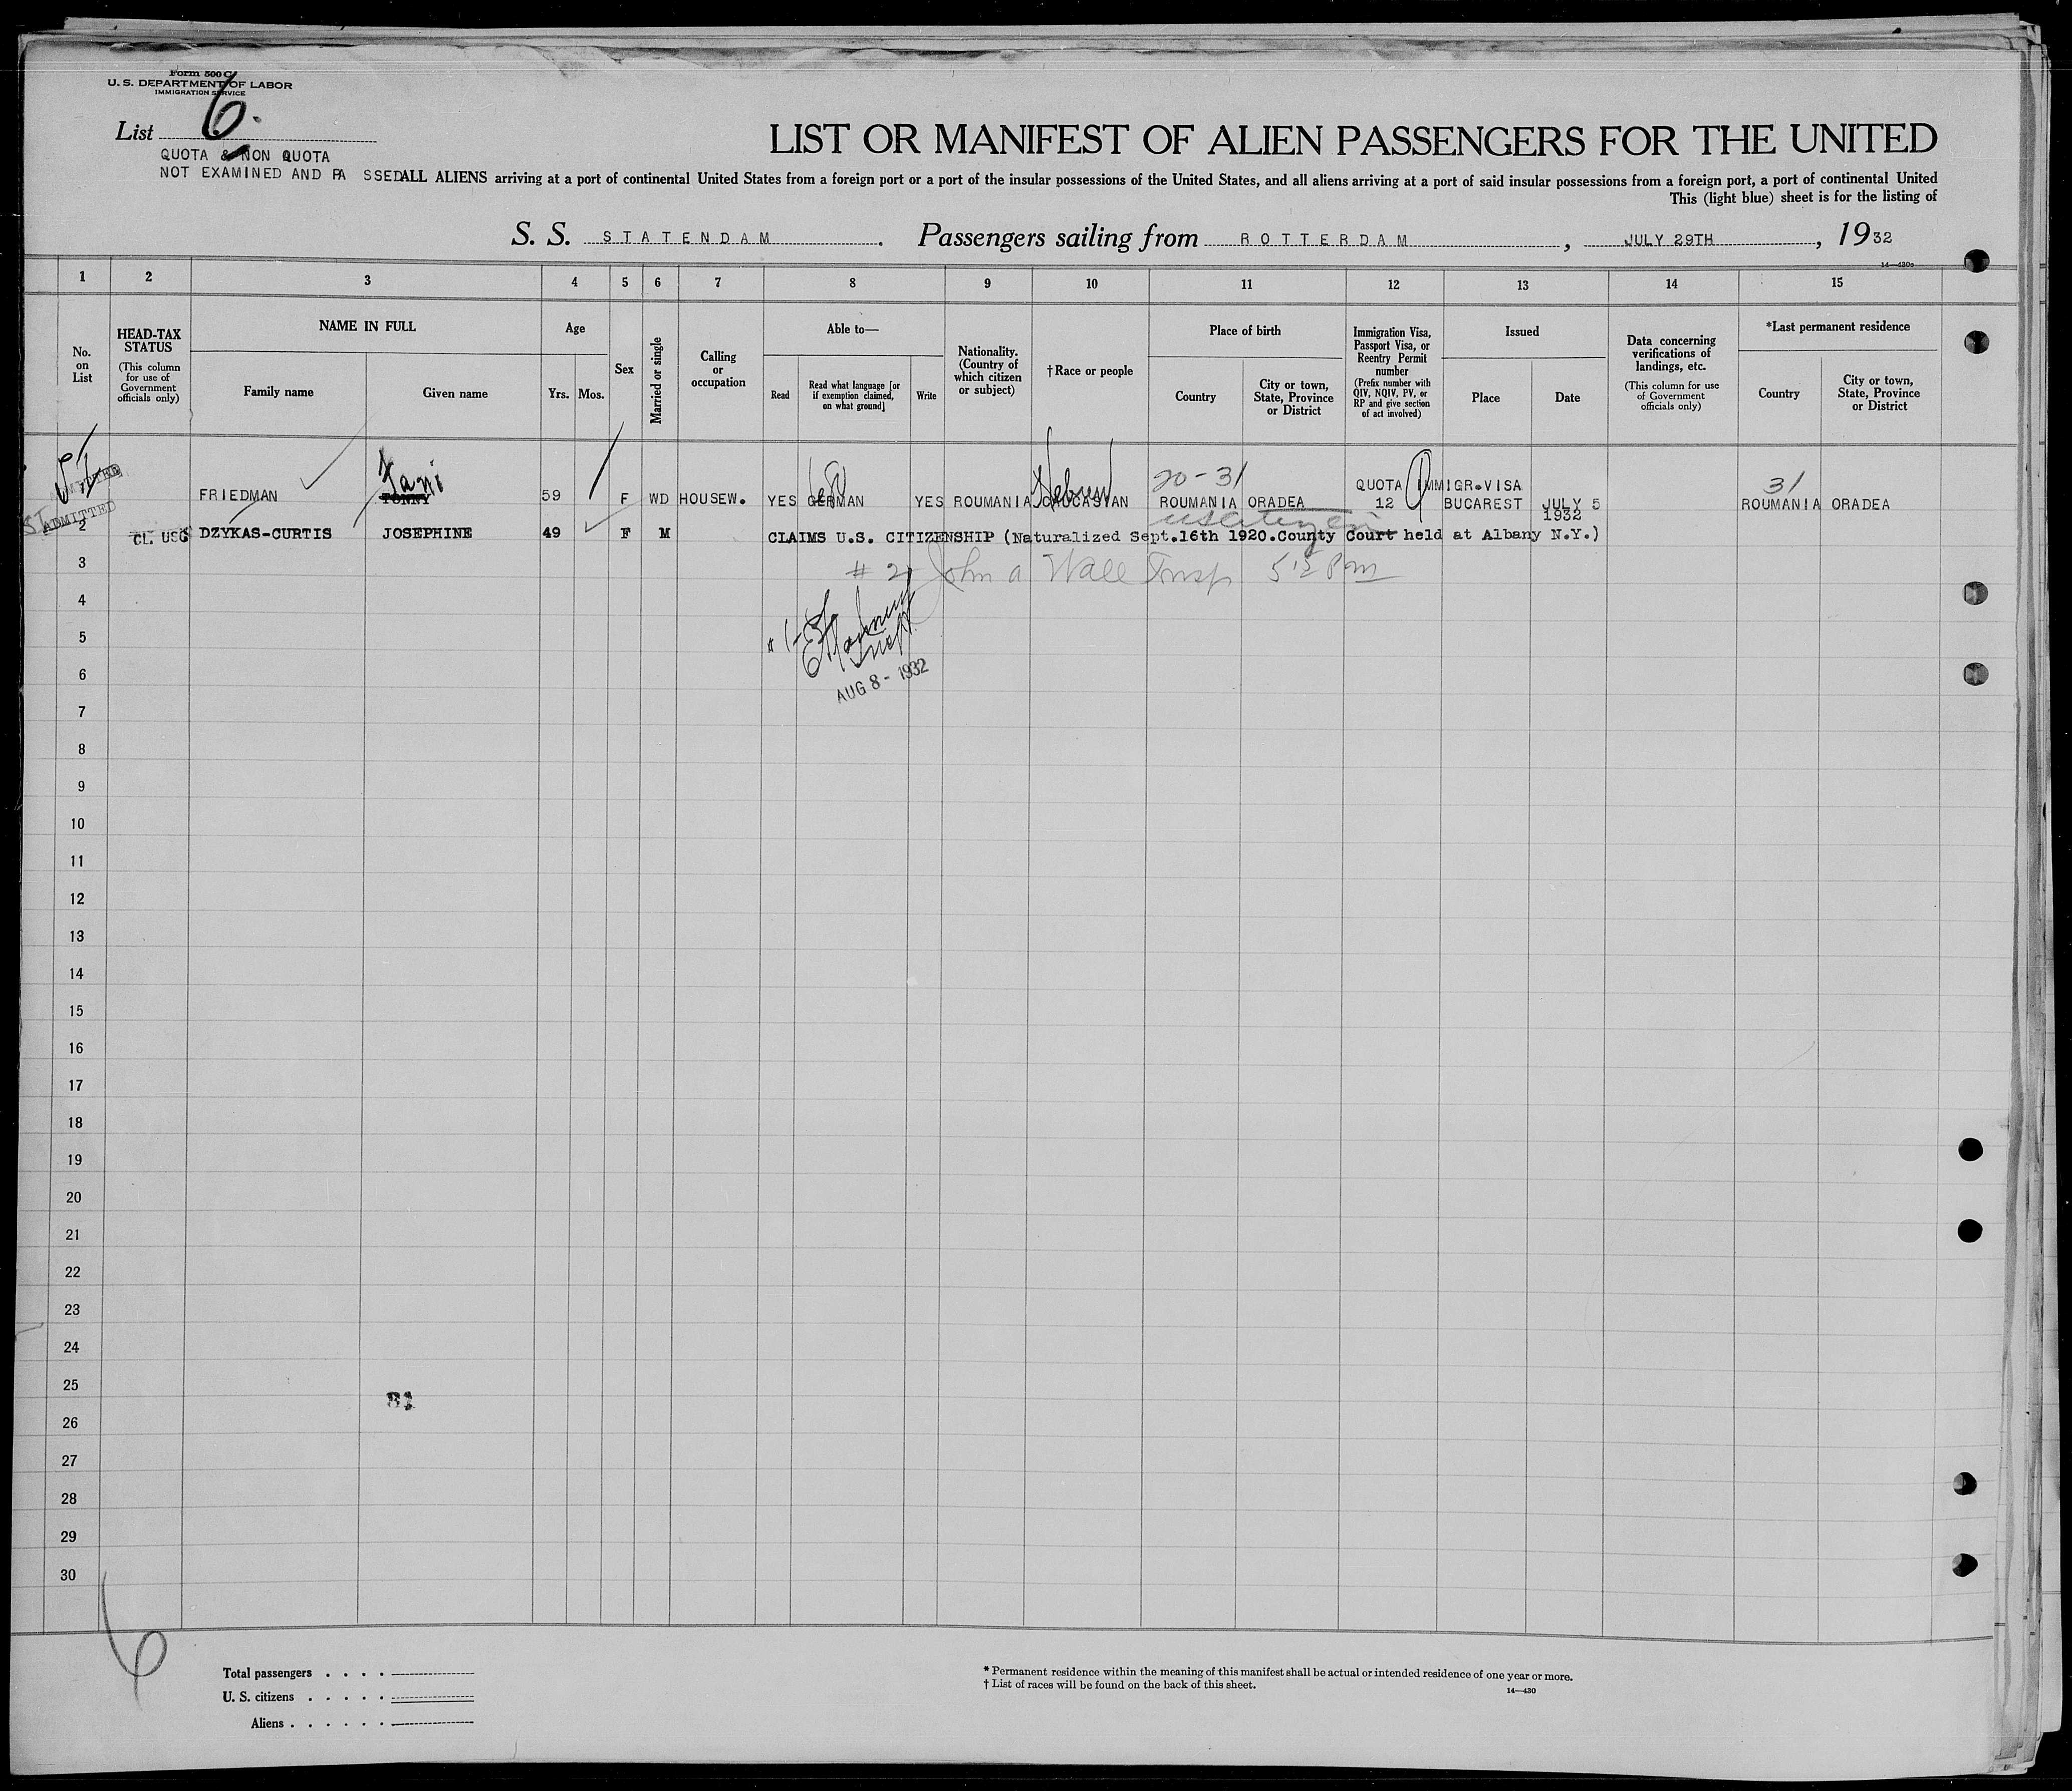 Form 500 C
U. S. DEPARTMENT OF LABOR
IMMIGRATION SERVICE
List 6.
QUOTA & NON QUOTA
NOT EXAMINED AND PA SSED
LIST OR MANIFEST OF ALIEN PASSENGERS FOR THE UNITED
ALL ALIENS arriving at a port of continental United States from a foreign port or a port of the insular possessions of the United States, and all aliens arriving at a port of said insular possessions from a foreign port, a port of continental United
This (light blue) sheet is for the listing of
S. S. STATENDAM. Passengers sailing from ROTTERDAM, JULY 29TH, 1932
14—430a
1 2 3 4 5 6 7 8 9 10 11 12 13 14 15
No. on List
HEAD-TAX STATUS
(This column for use of Government officials only)
NAME IN FULL
Family name
Given name
Age
Yrs. Mos.
Sex
Married or single
Calling or occupation
Able to—
Read
Read what language [or if exemption claimed, on what ground]
Write
Nationality. (Country of which citizen or subject)
†Race or people
Place of birth
Country
City or town, State, Province or District
Immigration Visa, Passport Visa, or Reentry Permit number
(Prefix number with QIV, NQIV, PV, or RP and give section of act involved)
Issued
Place
Date
Data concerning verifications of landings, etc.
(This column for use of Government officials only)
*Last permanent residence
Country
City or town, State, Province or District
ADMITTED
Fani
Hebrew
20-31
31
QUOTA IMMIGR.VISA
FRIEDMAN TONNY 59 F WD HOUSEW. YES GERMAN YES ROUMANIA CAUCASYAN ROUMANIA ORADEA 12 BUCAREST JULY 5 1932 ROUMANIA ORADEA
ADMITTED
us citizen
2 CL. USC DZYKAS-CURTIS JOSEPHINE 49 F M CLAIMS U.S. CITIZENSHIP (Naturalized Sept.16th 1920.County Court held at Albany N.Y.)
3
# 2 John A Wall Insp 5 15 Pm
4
5
# 1
Insp
6
AUG 8 - 1932
7
8
9
10
11
12
13
14
15
16
17
18
19
20
21
22
23
24
25
81
26
27
28
29
30
6
Total passengers . . . .
U. S. citizens . . . . .
Aliens . . . . . .
* Permanent residence within the meaning of this manifest shall be actual or intended residence of one year or more.
† List of races will be found on the back of this sheet.
14—430